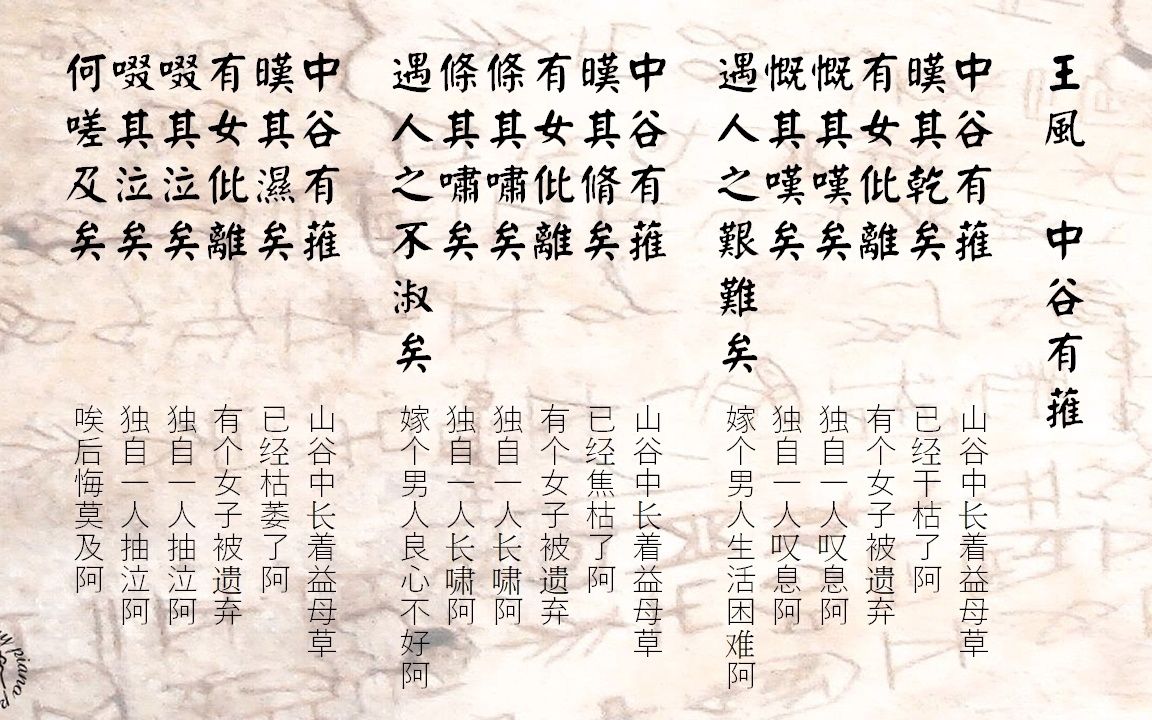 王風 中谷有蓷
中谷有蓷
暵其乾矣
有女仳離
慨其嘆矣
慨其嘆矣
遇人之艱難矣
山谷中长着益母草
已经干枯了阿
有个女子被遗弃
独自一人叹息阿
独自一人叹息阿
嫁个男人生活困难阿
中谷有蓷
暵其脩矣
有女仳離
條其嘯矣
條其嘯矣
遇人之不淑矣
山谷中长着益母草
已经焦枯了阿
有个女子被遗弃
独自一人长啸阿
独自一人长啸阿
嫁个男人良心不好阿
中谷有蓷
暵其濕矣
有女仳離
啜其泣矣
啜其泣矣
何嗟及矣
山谷中长着益母草
已经枯萎了阿
有个女子被遗弃
独自一人抽泣阿
独自一人抽泣阿
唉后悔莫及阿
piano